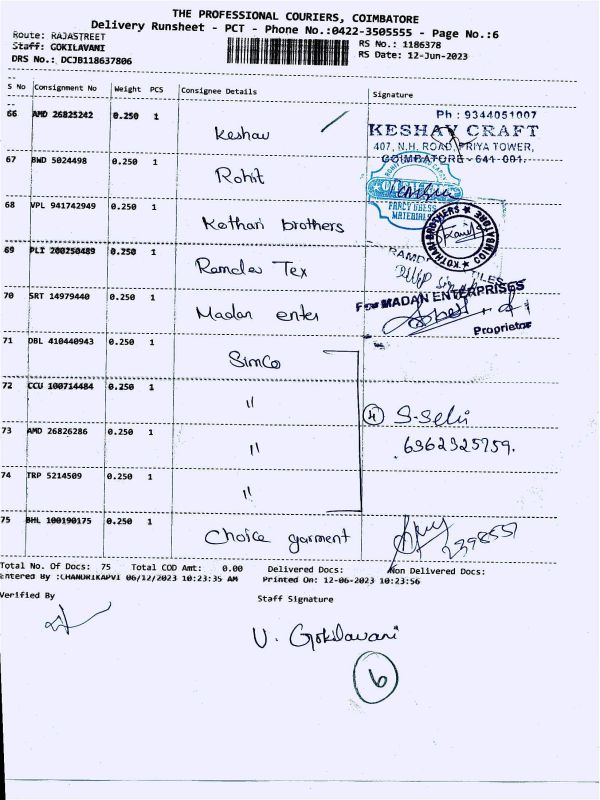 THE PROFESSIONAL COURIERS, COIMBATORE
Delivery Runsheet - PCT - Phone No.:0422-3505555 - Page No.:6
Route: RAJASTREET
RS No.: 1186378
Staff: GOKILAVANI
RS Date: 12-Jun-2023
DRS No.: DCJB118637806
S No Consignment No Weight PCS Consignee Details Signature
66 AMD 26825242 0.250 1 Keshav
Ph : 9344051007
KESHAV CRAFT
407, N.H. ROAD, PRIYA TOWER,
COIMBATORE - 641 001.
67 BWD 5024498 0.250 1 Rohit
FANCY DRESS
MATERIALS
68 VPL 941742949 0.250 1 Kothari brothers
KOTHARI BROTHERS COIMBATORE
69 PLI 200250489 0.250 1 Ramdev Tex
70 SRT 14979440 0.250 1 Madan enter
For MADAN ENTERPRISES
Proprietor
71 DBL 410440943 0.250 1 Simco
72 CCU 100714484 0.250 1 "
4 S-Selvi
73 AMD 26826286 0.250 1 "
6362325759.
74 TRP 5214509 0.250 1 "
75 BHL 100190175 0.250 1 Choice garment
Total No. Of Docs: 75 Total COD Amt: 0.00 Delivered Docs: Non Delivered Docs:
Entered By :CHANDRIKAPVI 06/12/2023 10:23:35 AM Printed On: 12-06-2023 10:23:56
Verified By
Staff Signature
V. Gokilavani
6